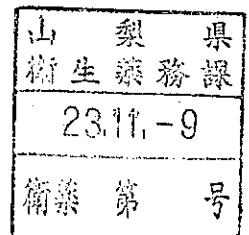 山梨県
衛生薬務課
23.11.-9
衛薬第 号